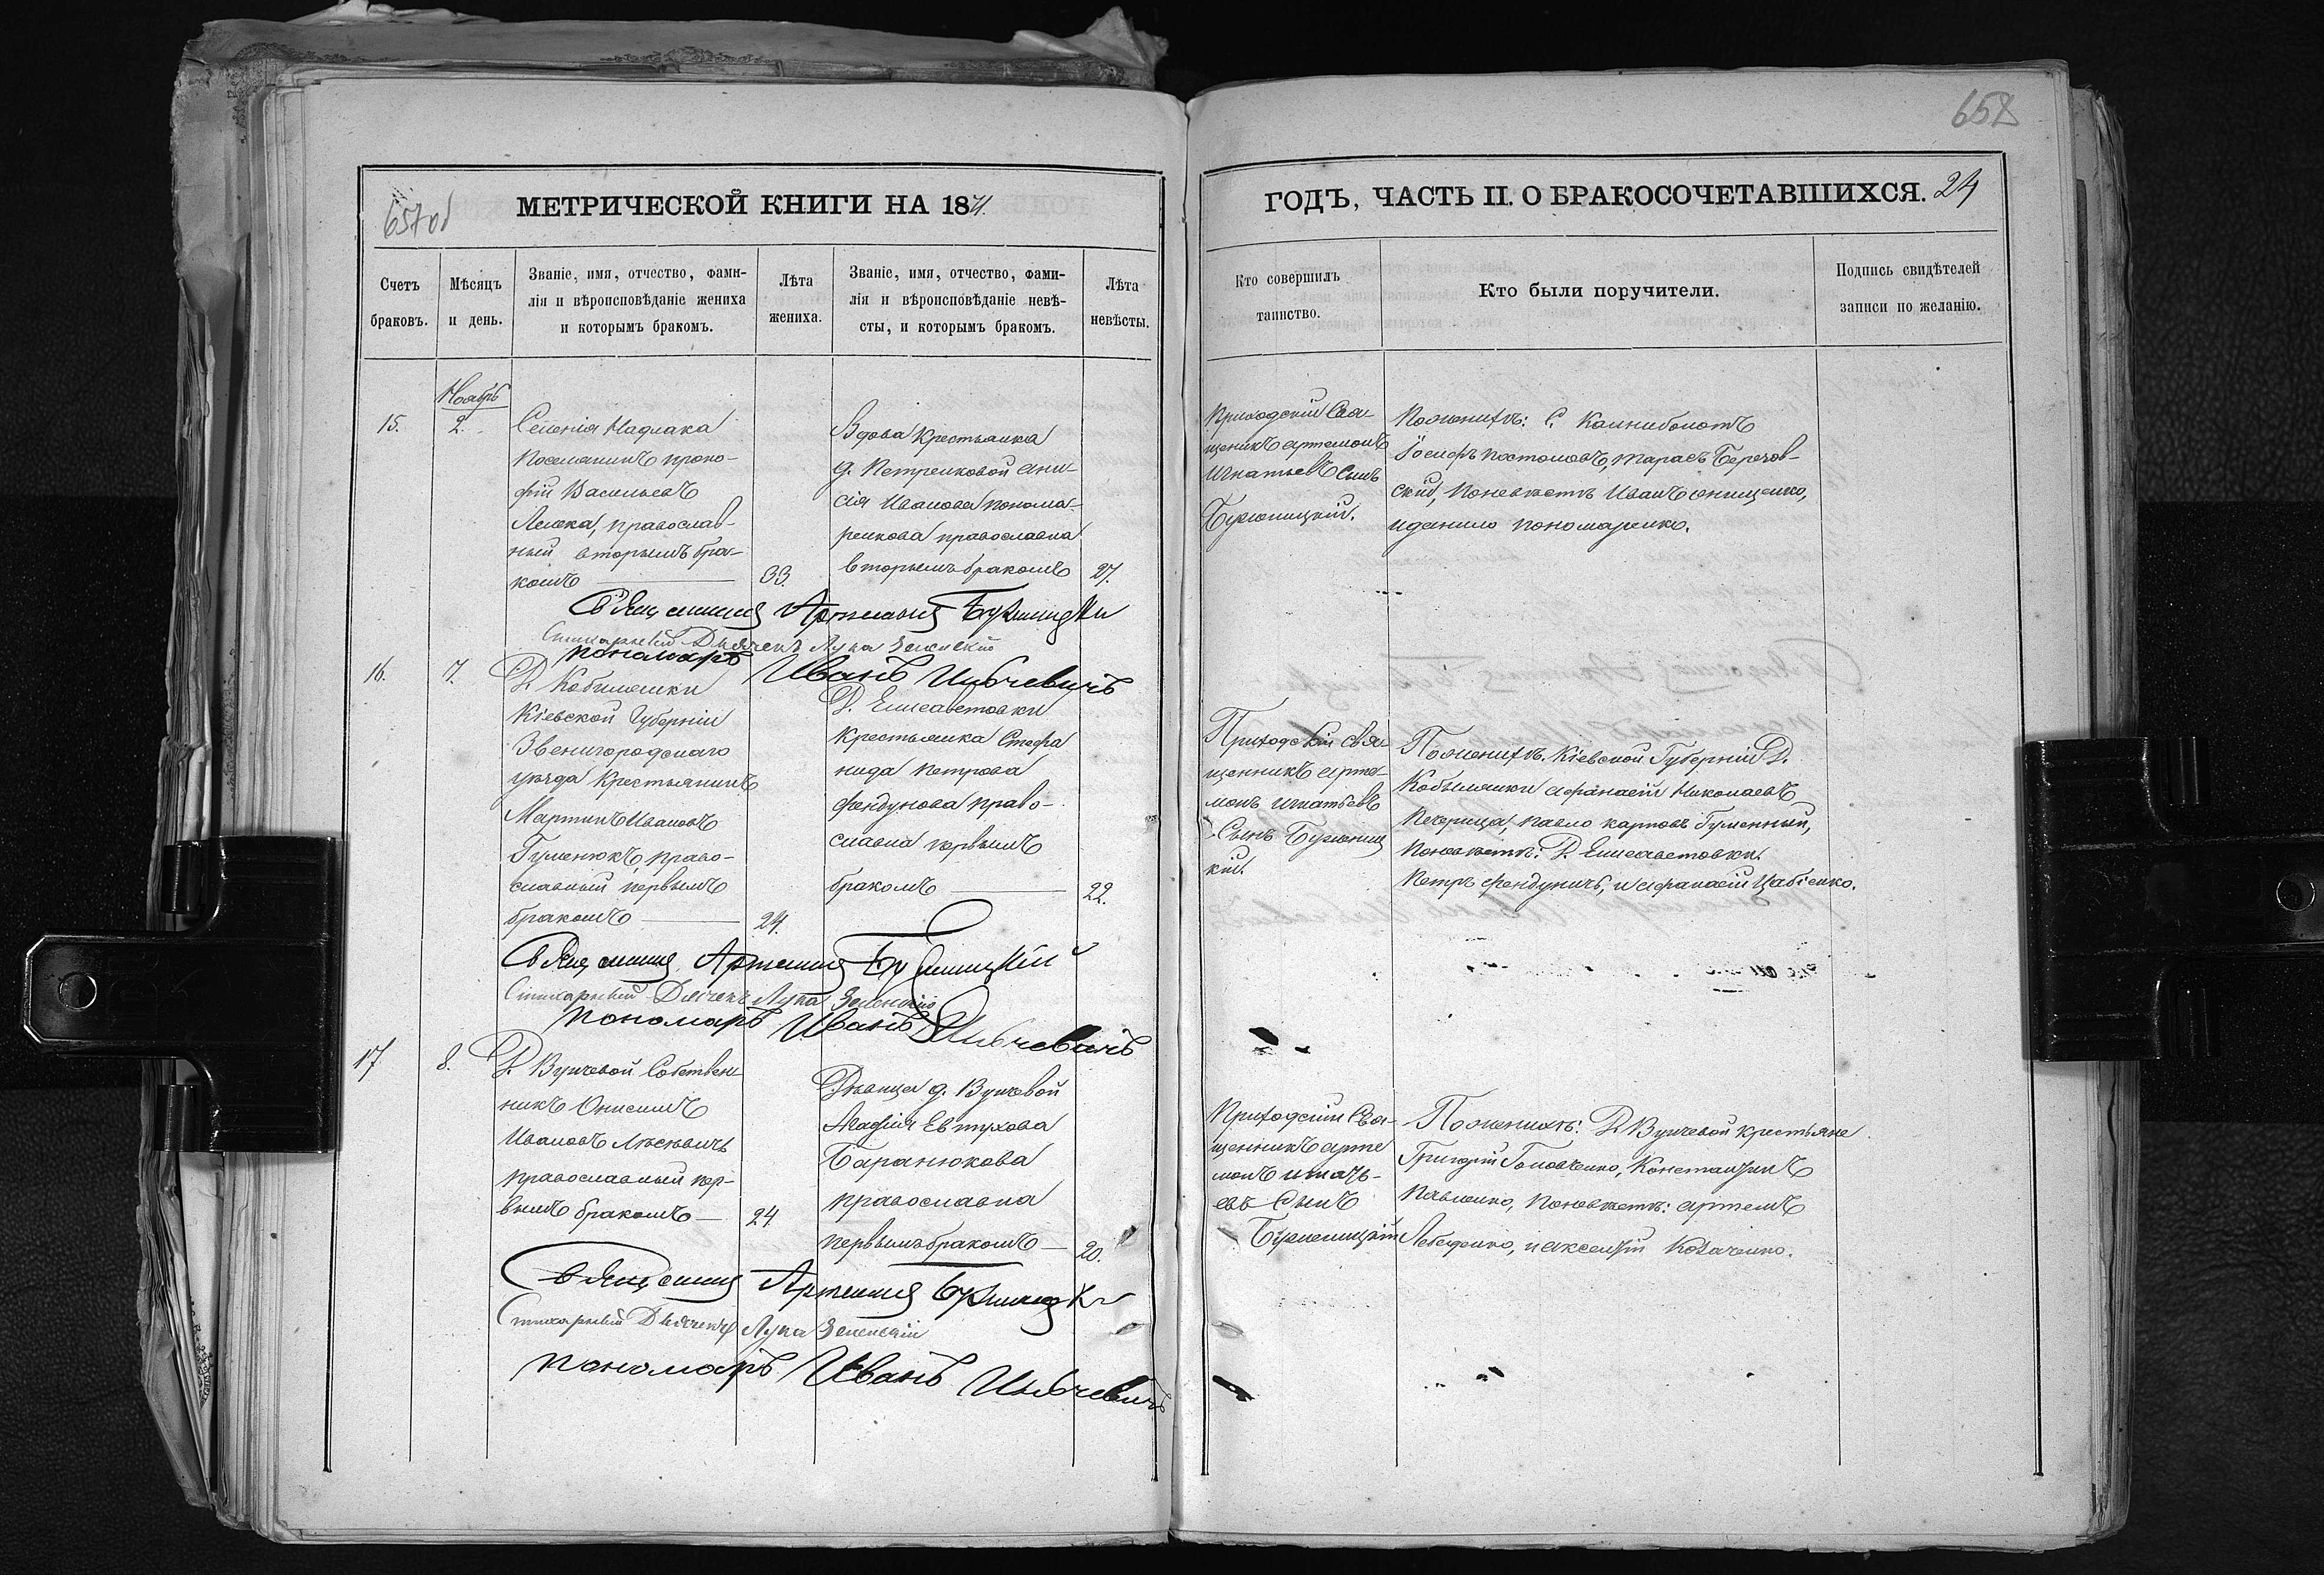 658
657об
МЕТРИЧЕСКОЙ КНИГИ НА 1871.
Счетъ браковъ.
Мѣсяцъ и день.
Званіе, имя, отчество, фами-
лія и вѣроисповѣданіе жениха
и которымъ бракомъ.
Лѣта жениха.
Званіе, имя, отчество, фами-
лія и вѣроисповѣданіе невѣ-
сты, и которымъ бракомъ.
Лѣта невѣсты.
Ноябрь
15.
2.
Селенія Надлака
поселянинъ проко-
фій Васильевъ
Лелека, православ-
ный вторымъ бра-
комъ
33.
Вдова крестьянка
д. Петренковой ани-
сія Иванова понома-
ренкова православна
вторымъ бракомъ
27.
Священникъ Артемонъ
Стихарный Дьячекъ Лука Зеленскій
пономарь Иванъ
16.
7.
Д. Кобиляшки
Кіевской Губерніи
Звенигородскаго
уѣзда крестьянинъ
Мартинъ Ивановъ
Гуменюкъ, право-
славный первымъ
бракомъ
24.
Д. Елисаветовки
крестьянка Стефа
нида петрова
фендунова право-
славна первымъ
бракомъ
22.
Священникъ Артемонъ
Стихарный Дьячекъ Лука Зеленскій
пономарь Иванъ
17
8.
Д. Вуичевой Собствен-
никъ Онисимъ
Ивановъ
православный пер-
вымъ бракомъ
24
Дѣвица д. Вуичевой
Агафія Евтухова
Баранюкова
православна
первымъ бракомъ
20.
Священникъ Артемонъ
Стихарный Дьячекъ Лука Зеленскій
пономарь Иванъ
ГОДЪ, ЧАСТЬ II. О БРАКОСОЧЕТАВШИХСЯ. 24
Кто совершилъ
таинство.
Кто были поручители.
Подпись свидѣтелей
записи по желанію.
Приходскій Свя-
щеникъ артемонъ
Игнатьевъ Сынъ
По женихѣ: С. Каминболотъ
Іосифъ постоловъ, тарасъ Березов-
скій, По невѣстѣ Иванъ онищенко,
и данило пономаренко.
Приходскій Свя
щенникъ арте-
монъ игнатьевъ
Сынъ
кій.
По женихѣ. Кіевской Губерніи Д.
Кобыляшки афанасій Николаевъ
Печерица, павло карповъ Гуменный,
По невѣстѣ: Д. Елисаветовки.
петръ фендуничъ, и афанасій Цабіенко.
Приходскій Свя-
щенникъ арте
монъ игнать-
евъ Сынъ
По женихѣ: Д. Вуичевой крестьяне
Григорій Головченко, Константинъ
Павленко, По невѣстѣ: артемъ
Лебеденко, и аксентій Козаченко.